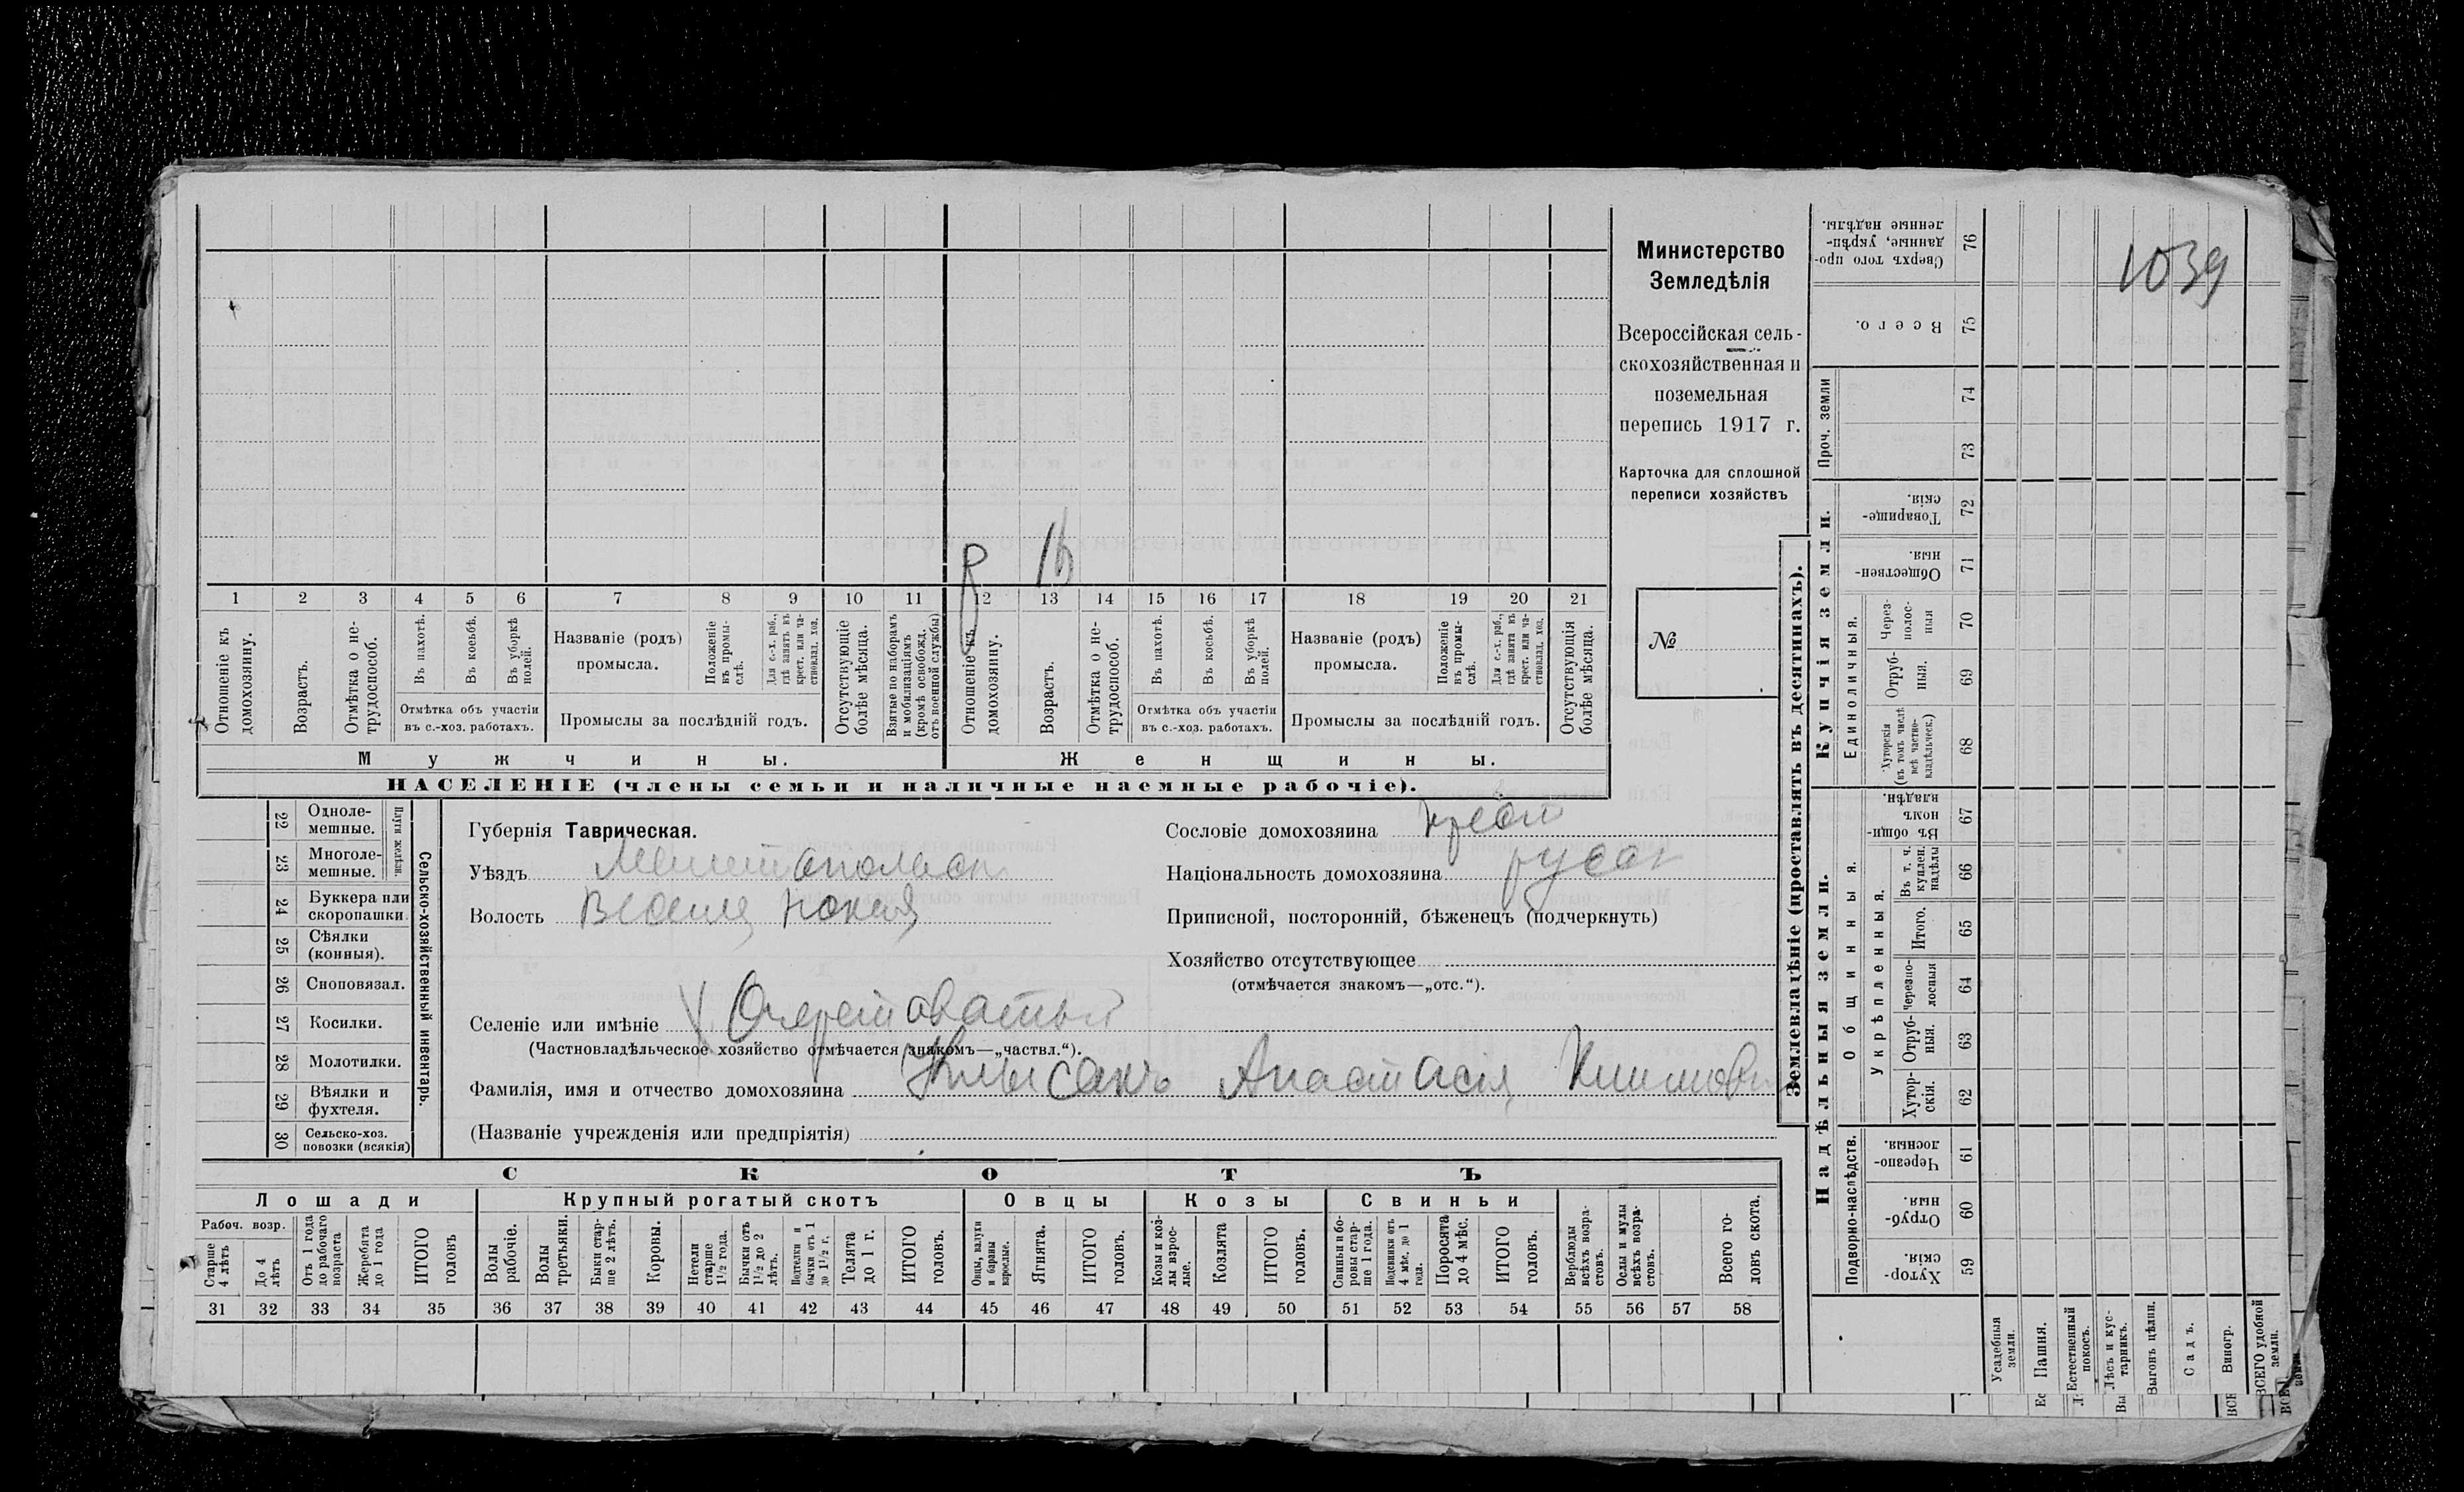 Министерство
Земледѣлія
Всероссійская сель-
скохозяйственная и
поземельная
перепись 1917 г.
Карточка для сплошной
переписи хозяйствъ
№
1039
1 2 3 4 5 6 7 8 9 10 11 12 13 14 15 16 17 18 19 20 21
Отношеніе къ домохозяину.
Возрастъ.
Отмѣтка о не-трудоспособ.
Въ пахотѣ.
Въ косьбѣ.
Въ уборкѣ полей.
Отмѣтка объ участіи
въ с.-хоз. работахъ.
Названіе (родъ)
промысла.
Положеніе въ промы-слѣ.
Для с.-х. раб., гдѣ занятъ въ крест. или ча-стновлад. хоз.
Промыслы за послѣдній годъ.
Отсутствующіе болѣе мѣсяца.
Взятые по наборамъ и мобилизаціямъ (кромѣ освобожд. отъ военной службы)
Отношеніе къ домохозяину.
Возрастъ.
Отмѣтка о не-трудоспособ.
Въ пахотѣ.
Въ косьбѣ.
Въ уборкѣ полей.
Отмѣтка объ участіи
въ с.-хоз. работахъ.
Названіе (родъ)
промысла.
Положеніе въ промы-слѣ.
Для с.-х. раб., гдѣ занята въ крест. или ча-стновлад. хоз.
Промыслы за послѣдній годъ.
Отсутствующія болѣе мѣсяца.
Мужчины.
Женщины.
НАСЕЛЕНІЕ (члены семьи и наличные наемные рабочіе).
22 Одноле-мешные.
23 Многоле-мешные.
Плуги желѣзн.
24 Буккера или скоропашки.
25 Сѣялки (конныя).
26 Сноповязал.
27 Косилки.
28 Молотилки.
29 Вѣялки и фухтеля.
30 Сельско-хоз. повозки (всякія)
Сельско-хозяйственный инвентарь.
Губернія Таврическая.
Уѣздъ Мелитопольск
Волость
Селеніе или имѣніе Очеретоватый
(Частновладѣльческое хозяйство отмѣчается знакомъ—„частвл.“).
Фамилія, имя и отчество домохозяина Анастасія
(Названіе учрежденія или предпріятія)
Сословіе домохозяина крест
Національность домохозяина русск
Приписной, посторонній, бѣженецъ (подчеркнуть)
Хозяйство отсутствующее
(отмѣчается знакомъ—„отс.“).
СКОТЪ
Лошади
Крупный рогатый скотъ
Овцы
Козы
Свиньи
Рабоч. возр.
Старше 4 лѣтъ
До 4 лѣтъ
Отъ 1 года до рабочаго возраста
Жеребята до 1 года
ИТОГО головъ
Волы рабочіе.
Волы третьяки.
Быки стар-ше 2 лѣтъ.
Коровы.
Нетели старше 1½ года.
Бычки отъ 1½ до 2 лѣтъ.
Подтелки и бычки отъ 1 до 1½ г.
Телята до 1 г.
ИТОГО головъ.
Овцы, валухи и бараны взрослые.
Ягнята.
ИТОГО головъ.
Козы и коз-лы взрос-лые.
Козлята
ИТОГО головъ.
Свиньи и бо-ровы стар-ше 1 года.
Подсвинки отъ 4 мѣс. до 1 года.
Поросята до 4 мѣс.
ИТОГО головъ.
Верблюды всѣхъ возра-стовъ.
Ослы и мулы всѣхъ возра-стовъ.
Всего го-ловъ скота.
31 32 33 34 35 36 37 38 39 40 41 42 43 44 45 46 47 48 49 50 51 52 53 54 55 56 57 58
Землевладѣніе (проставлять въ десятинахъ).
Надѣльныя земли.
Купчія земли.
Проч. земли
Подворно-наслѣдств.
Общинныя.
Укрѣпленныя.
Единоличныя.
Сверхъ того про-данные, укрѣп-ленные надѣлы. 76
Всего. 75
74
73
Товарище-скія. 72
Обществен-ныя. 71
Через-полос-ныя 70
Отруб-ныя. 69
Хуторскія (въ томъ числѣ всѣ частно-владѣльческ.) 68
Въ общи-номъ владѣн. 67
Въ т. ч. куплен. надѣлы 66
Итого. 65
Черезпо-лосныя 64
Отруб-ныя. 63
Хутор-скія. 62
Черезпо-лосныя. 61
Отруб-ныя. 60
Хутор-скія. 59
Усадебныя земли.
Пашня.
Естественный покосъ.
Лѣсъ и кус-тарникъ.
Выгонъ цѣлин.
Садъ.
Виногр.
ВСЕГО удобной земли.